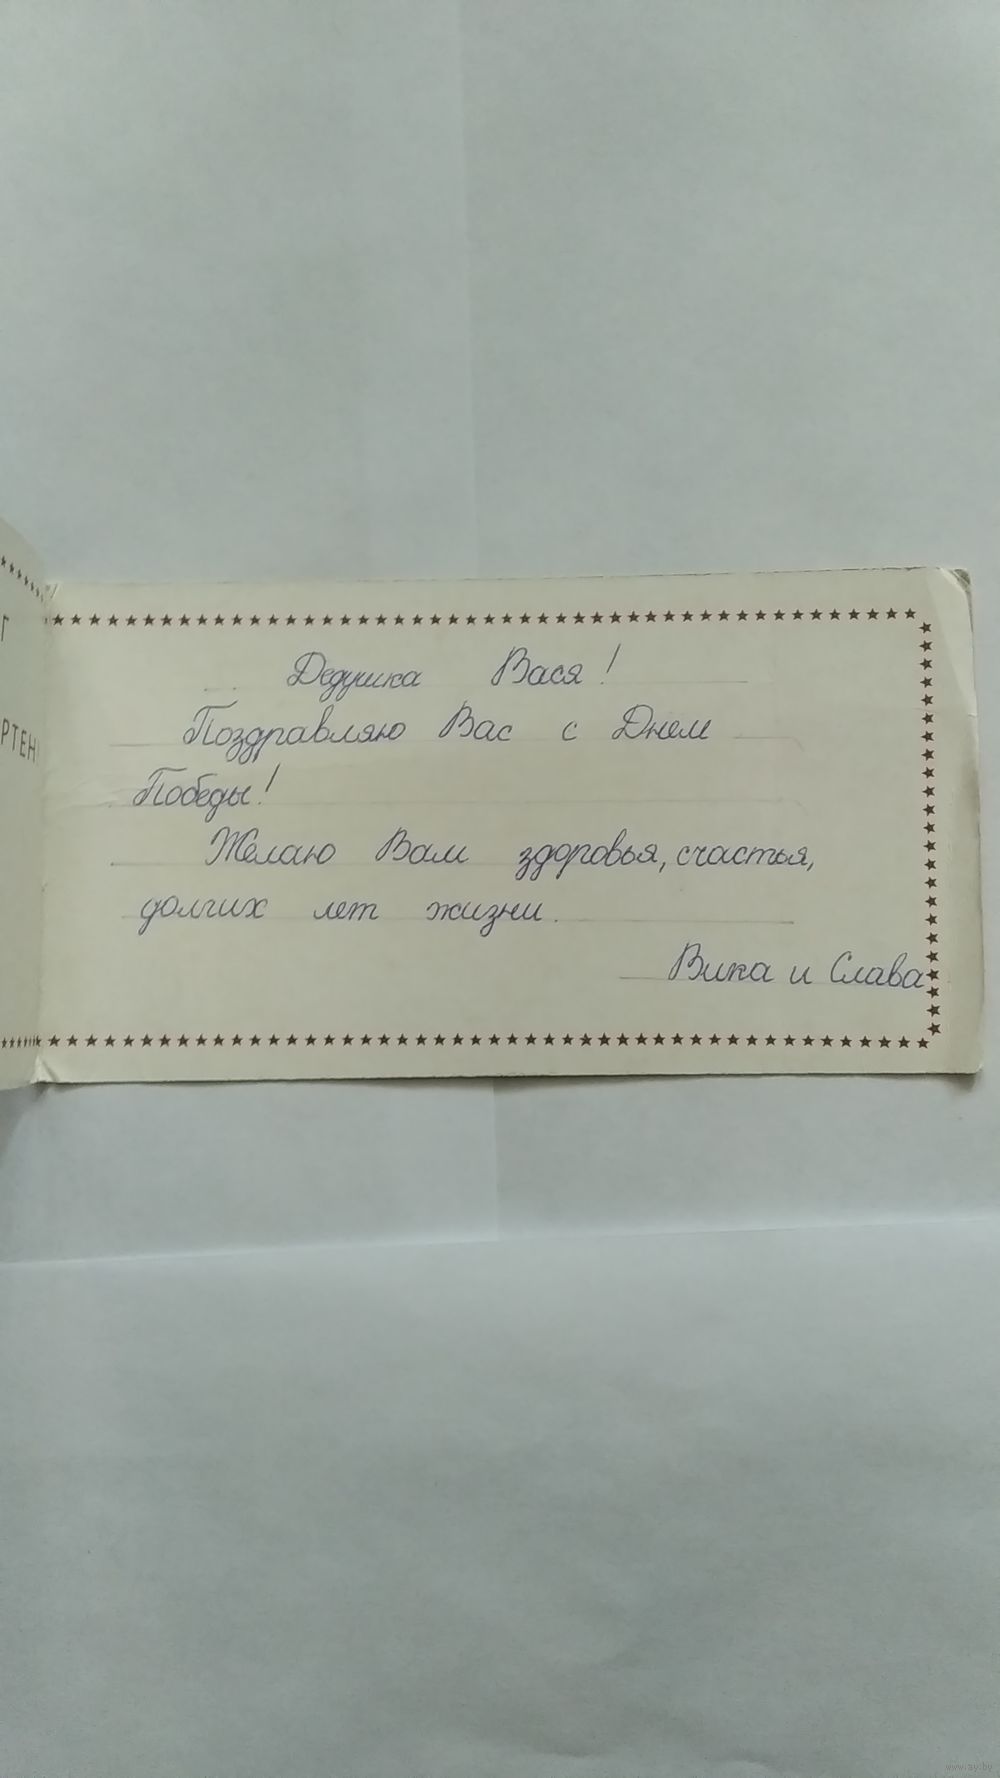 Дедушка Вася!
Поздравляю Вас с Днем
Победы!
Желаю Вам здоровья, счастья,
долгих лет жизни.
Вика и Слава
www.ay.by